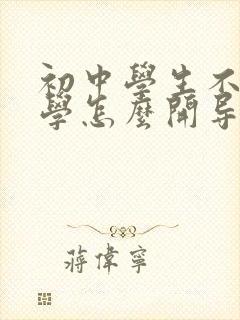 初中學生不
學怎麼開导
蔣偉寧